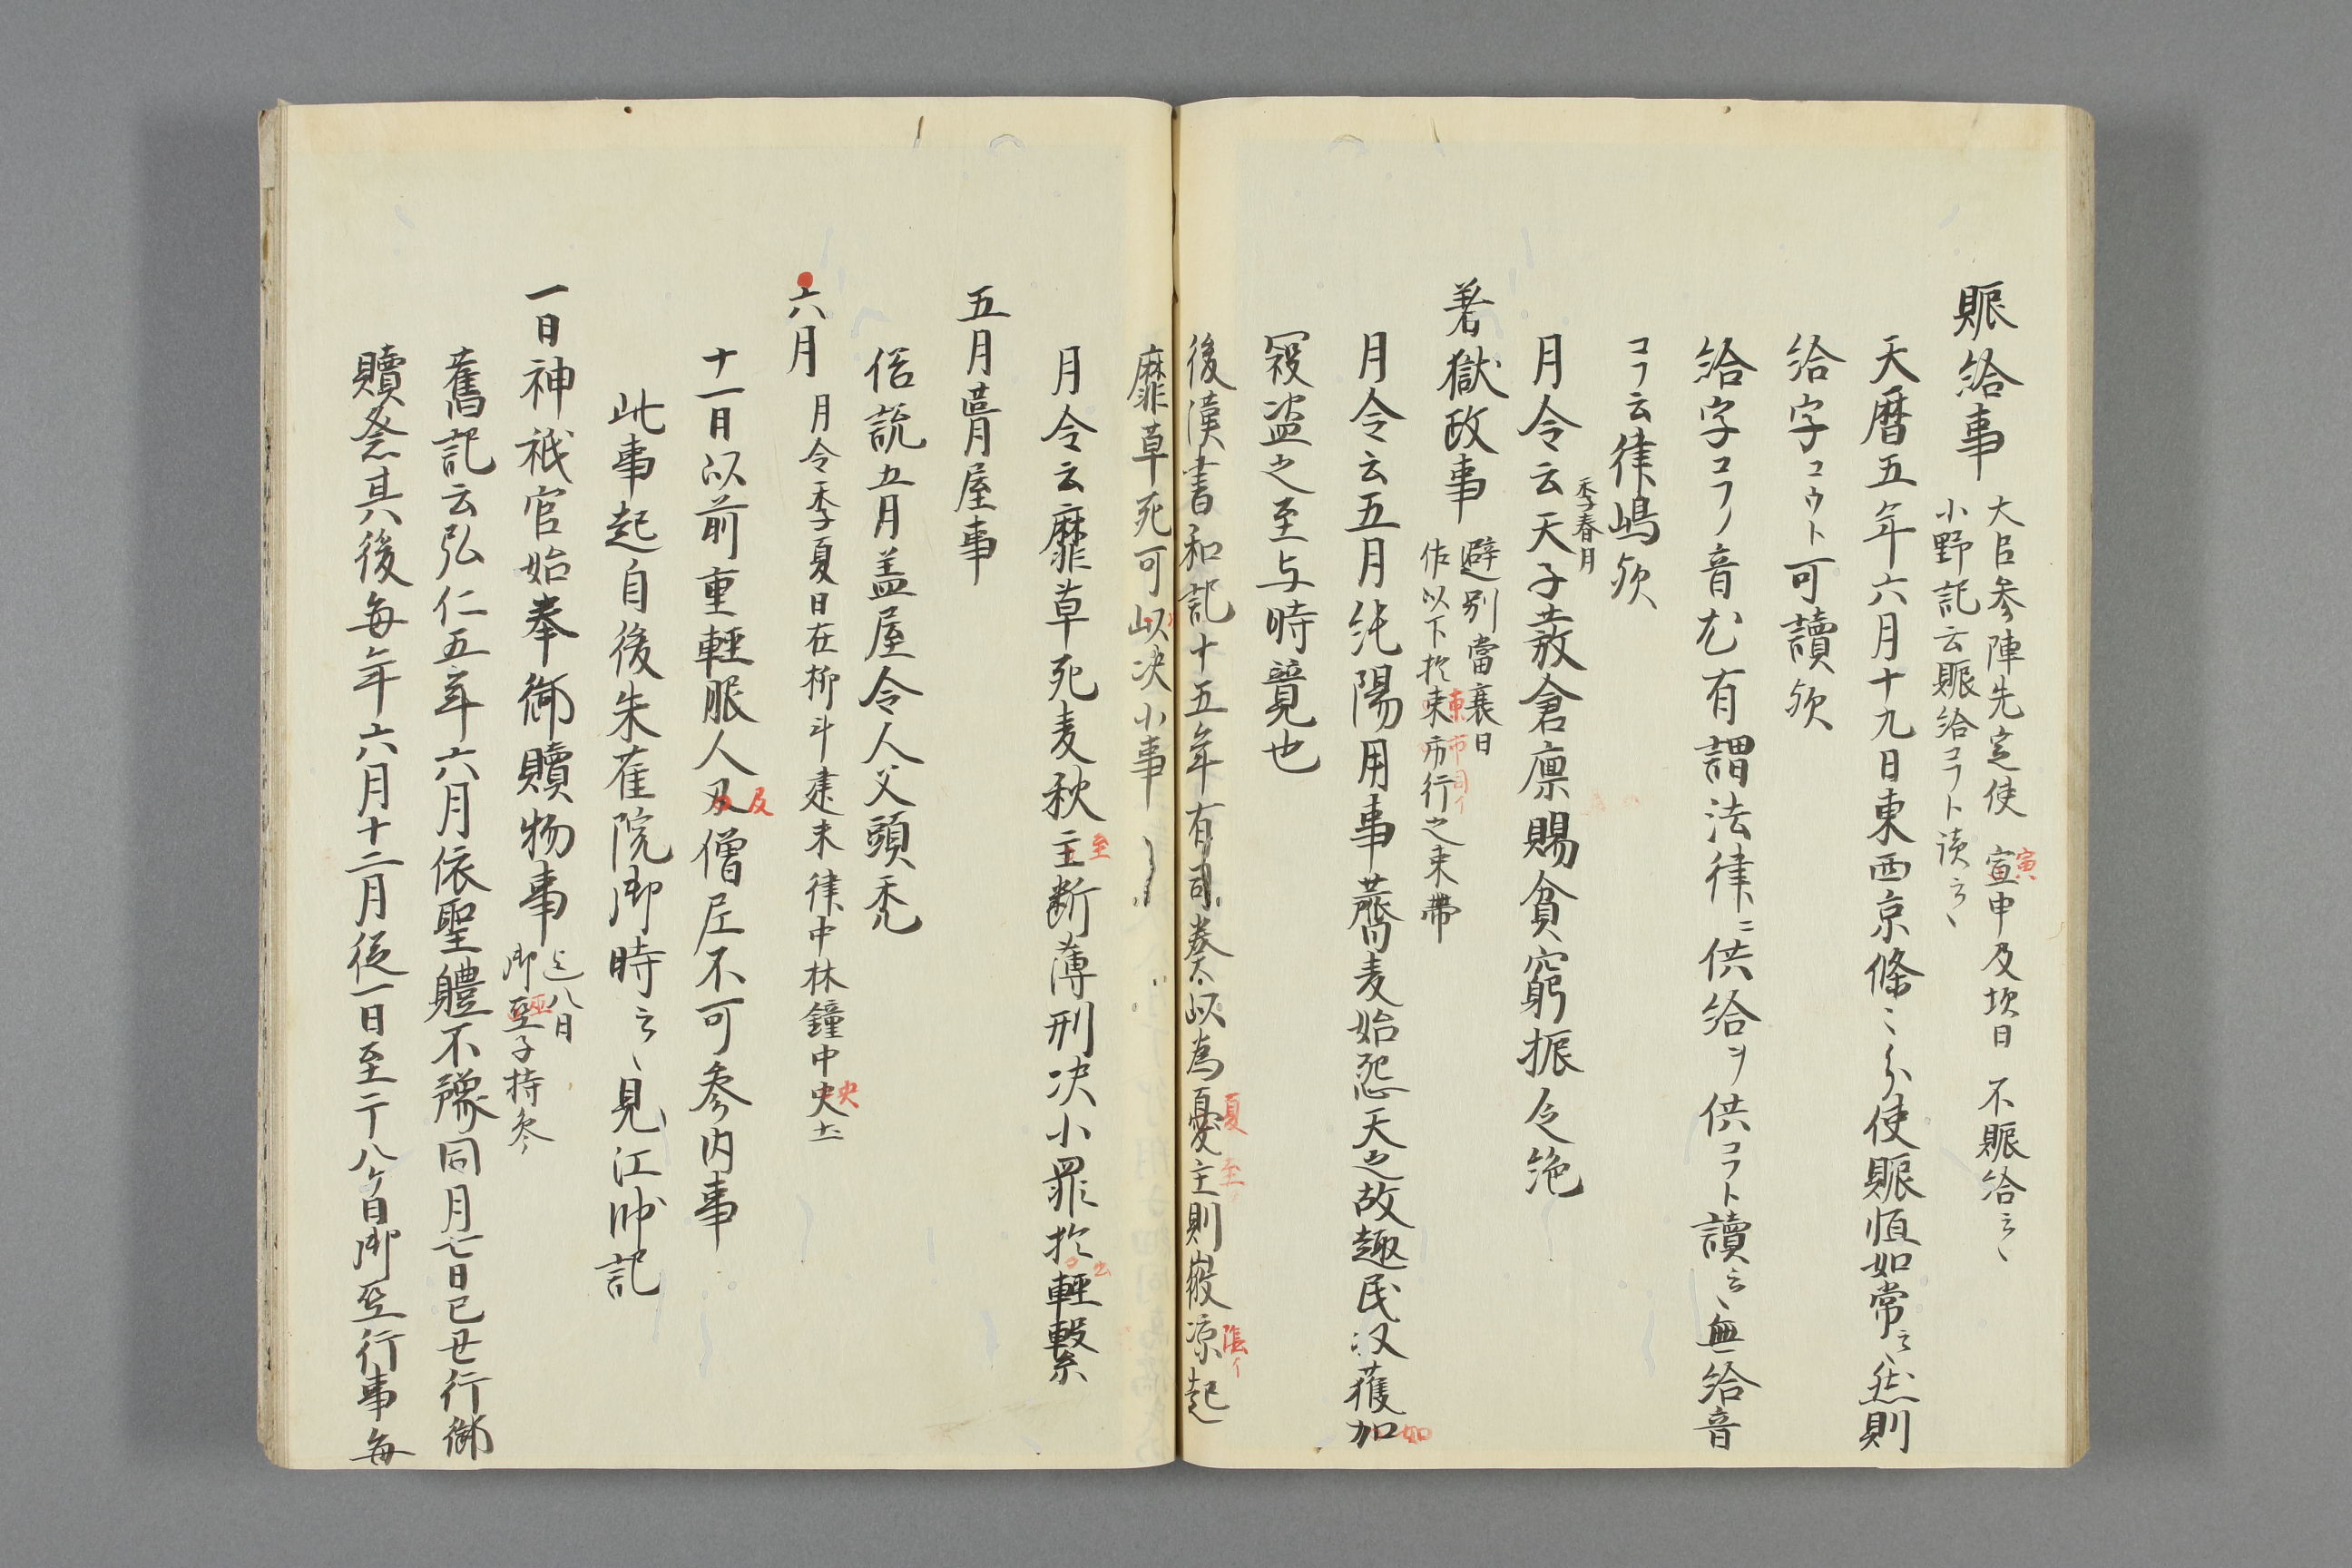 賑給事
大臣参陣先定使 宣申及坎日 不賑給云々
寅
小野記云賑給コフト读云々
天暦五年六月十九日東西京條々分使賑恤如常云々然則
給字コウト可讀歟
給字コフノ音尤有謂法律ニ供給ヲ供コフト讀云々無給音
コフ云律嶋歟
月令云天子發倉廩賜貧窮振令絶
季春月
着獄政事
避別當衰日
作以下於東市行之束帯
東市司イ
月令云五月純陽用事蕎麦始怨天之故趣民収獲加
如
冦盗之至与時竟也
後漢書和記十五年有司奏以為憂主則微凉起
夏
至
陰イ
靡草死可以决小事
月令云靡草死麦秋主断薄刑决小罪於輕繋
至
出
五月蓋屋事
俗説五月盖屋令人父頭禿
六月
月令季夏日在柳斗建未 律中林鐘中央土
央
十一日以前重輕服人及僧尼不可参内事
及
此事起自後朱雀院御時云々見江帥記
一日神祇官始奉御贖物事
迄八日
御巫子持参
巫
舊記云弘仁五年六月依聖體不豫同月七日已丑行御
贖祭其後毎年六月十二月從一日至于八ケ日御巫行事毎